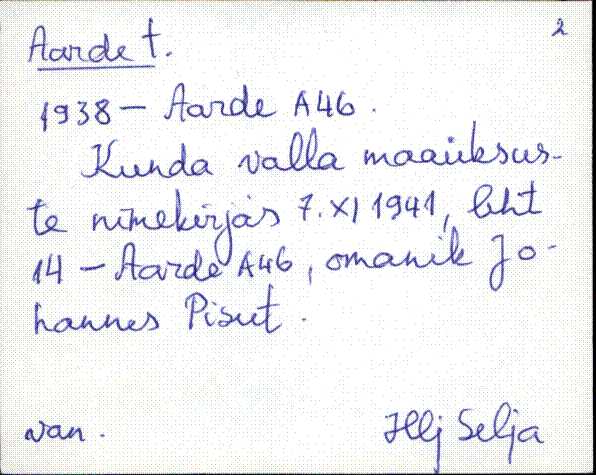 2
Aarde t.
1938 – Aarde A46.
Kunda valla maaüksus-
te nimekirjas 7.XI 1941, leht
14 – Aarde A46, omanik Jo-
hannes Pisut.
van. Hlj Selja